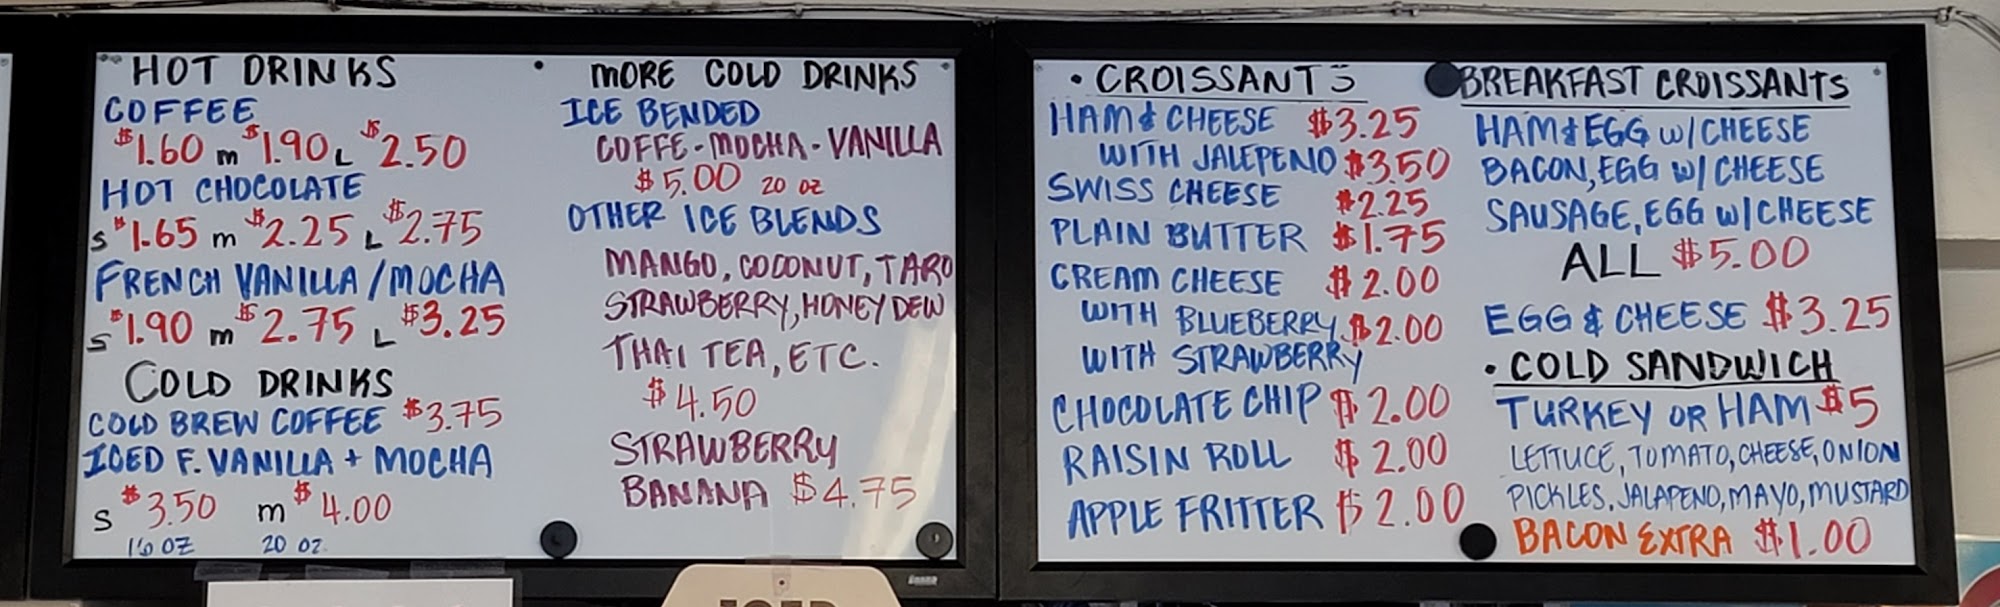 HOT DRINKS
COFFEE
$1.60 m $1.90 L $2.50
HOT CHOCOLATE
S $1.65 m $2.25 L $2.75
FRENCH VANILLA/MOCHA
S $1.90 m $2.75 L $3.25
COLD DRINKS
COLD BREW COFFEE $3.75
ICED F. VANILLA + MOCHA
S $3.50 m $4.00
16 OZ 20 OZ.
• MORE COLD DRINKS
ICE BENDED
COFFE - MOCHA - VANILLA
$5.00 20 OZ
OTHER ICE BLENDS
MANGO, COCONUT, TARO
STRAWBERRY, HONEY DEW
THAI TEA, ETC.
$4.50
STRAWBERRY
BANANA $4.75
• CROISSANTS
HAM & CHEESE $3.25
WITH JALEPENO $3.50
SWISS CHEESE $2.25
PLAIN BUTTER $1.75
CREAM CHEESE $2.00
WITH BLUEBERRY $2.00
WITH STRAWBERRY
CHOCOLATE CHIP $2.00
RAISIN ROLL $2.00
APPLE FRITTER $2.00
BREAKFAST CROISSANTS
HAM & EGG W/CHEESE
BACON, EGG W/CHEESE
SAUSAGE, EGG W/CHEESE
ALL $5.00
EGG & CHEESE $3.25
• COLD SANDWICH
TURKEY OR HAM $5
LETTUCE, TOMATO, CHEESE, ONION
PICKLES, JALAPENO, MAYO, MUSTARD
BACON EXTRA $1.00